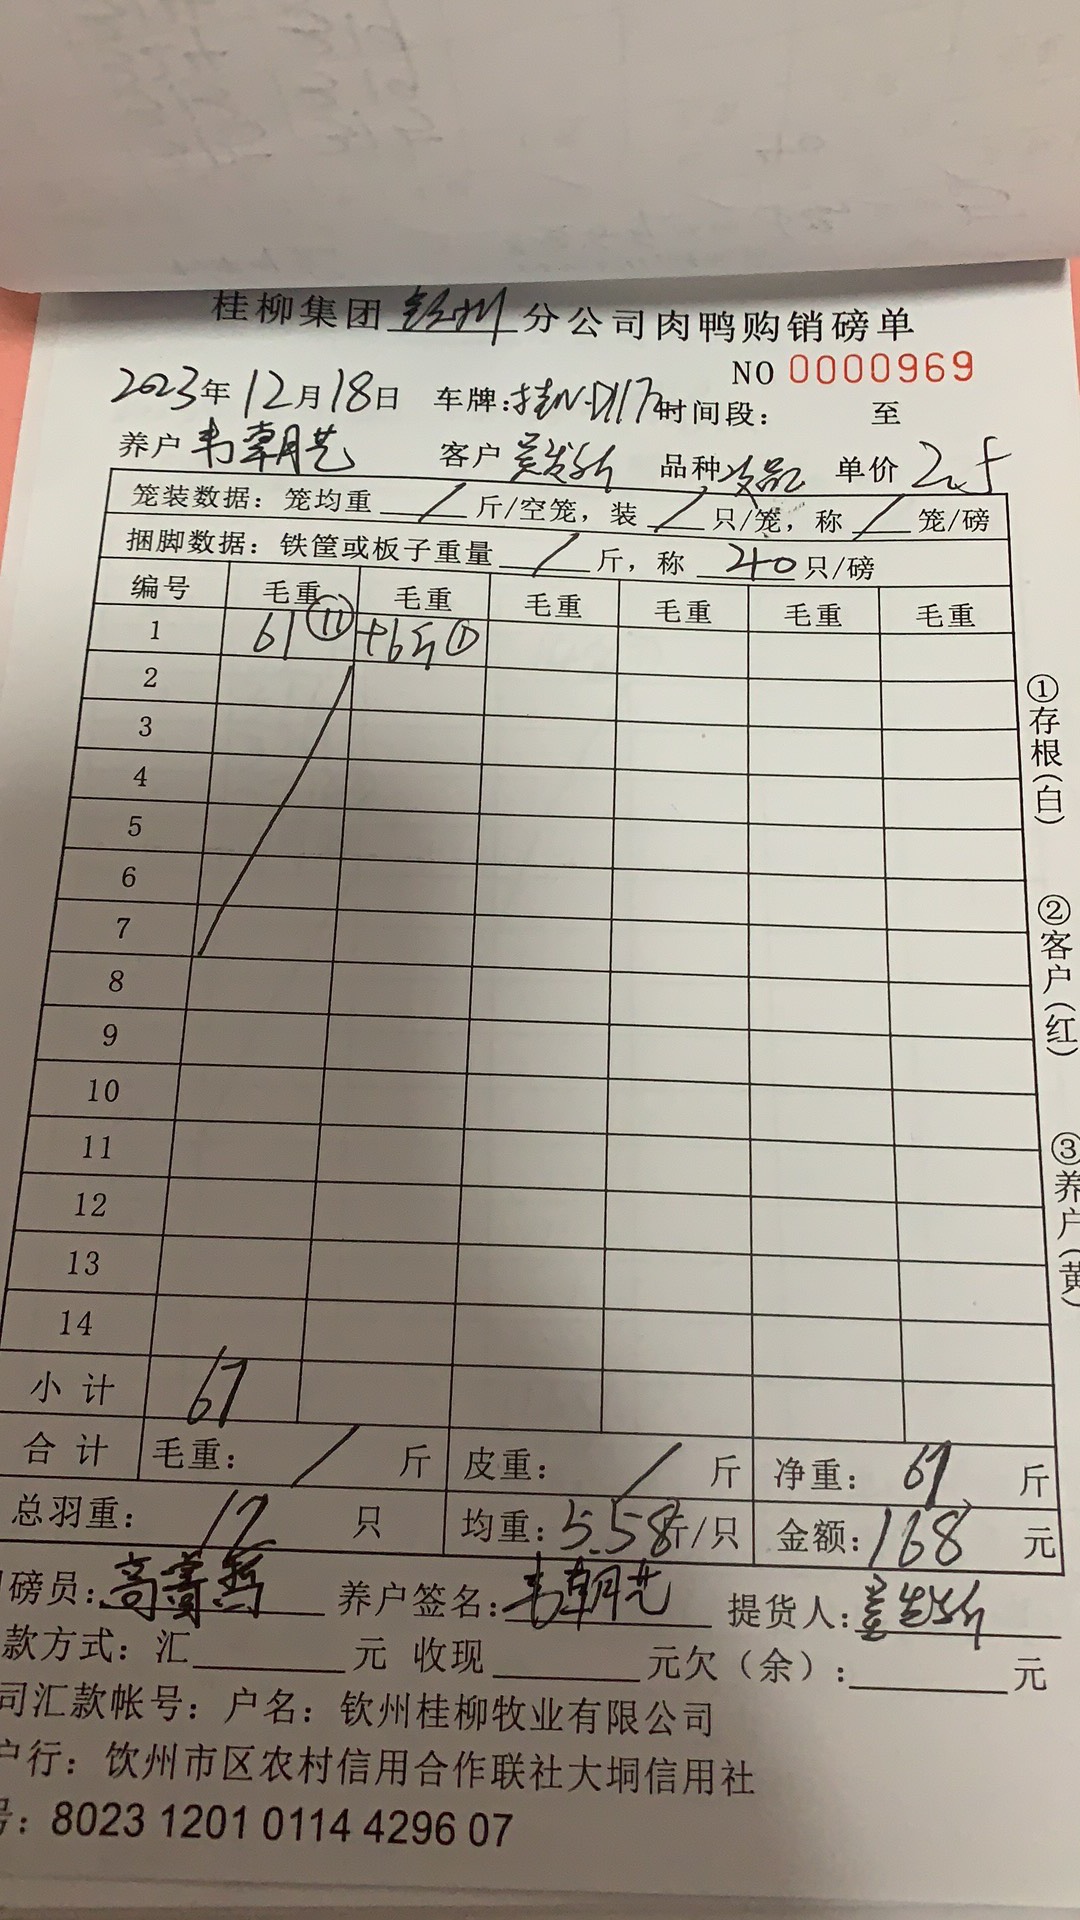 桂柳集团 钦州 分公司肉鸭购销磅单
NO 0000969
2023年12月18日 车牌:桂N·D117 时间段: 至
养户 韦朝艺 客户 品种 次品 单价 2.5
笼装数据: 笼均重 / 斤/空笼, 装 / 只/笼, 称 / 笼/磅
捆脚数据: 铁筐或板子重量 / 斤, 称 40 只/磅
编号 毛重 毛重 毛重 毛重 毛重 毛重
1 61 ⑪ +6斤 ①
2
3
4
5
6
7
8
9
10
11
12
13
14
小计 67
合计 毛重: / 斤 皮重: / 斤 净重: 67 斤
总羽重: 12 只 均重: 5.58斤/只 金额: 168 元
磅员: 养户签名: 韦朝艺 提货人:
款方式: 汇 元 收现 元欠(余): 元
司汇款帐号: 户名: 钦州桂柳牧业有限公司
户行: 饮州市区农村信用合作联社大垌信用社
号: 8023 1201 0114 4296 07
①存根(白)
②客户(红)
③养户(黄)